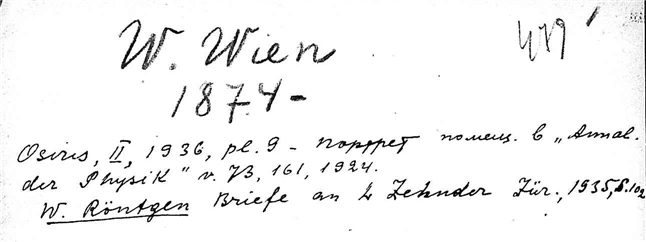 W. Wien
479
1874 -
Osiris, II, 1936, pl. 9 - портрет помещ. в „Annal.
der Physik" v. 73, 161, 1924.
W. Röntgen Briefe an L Zehnder Zür., 1935, S. 102